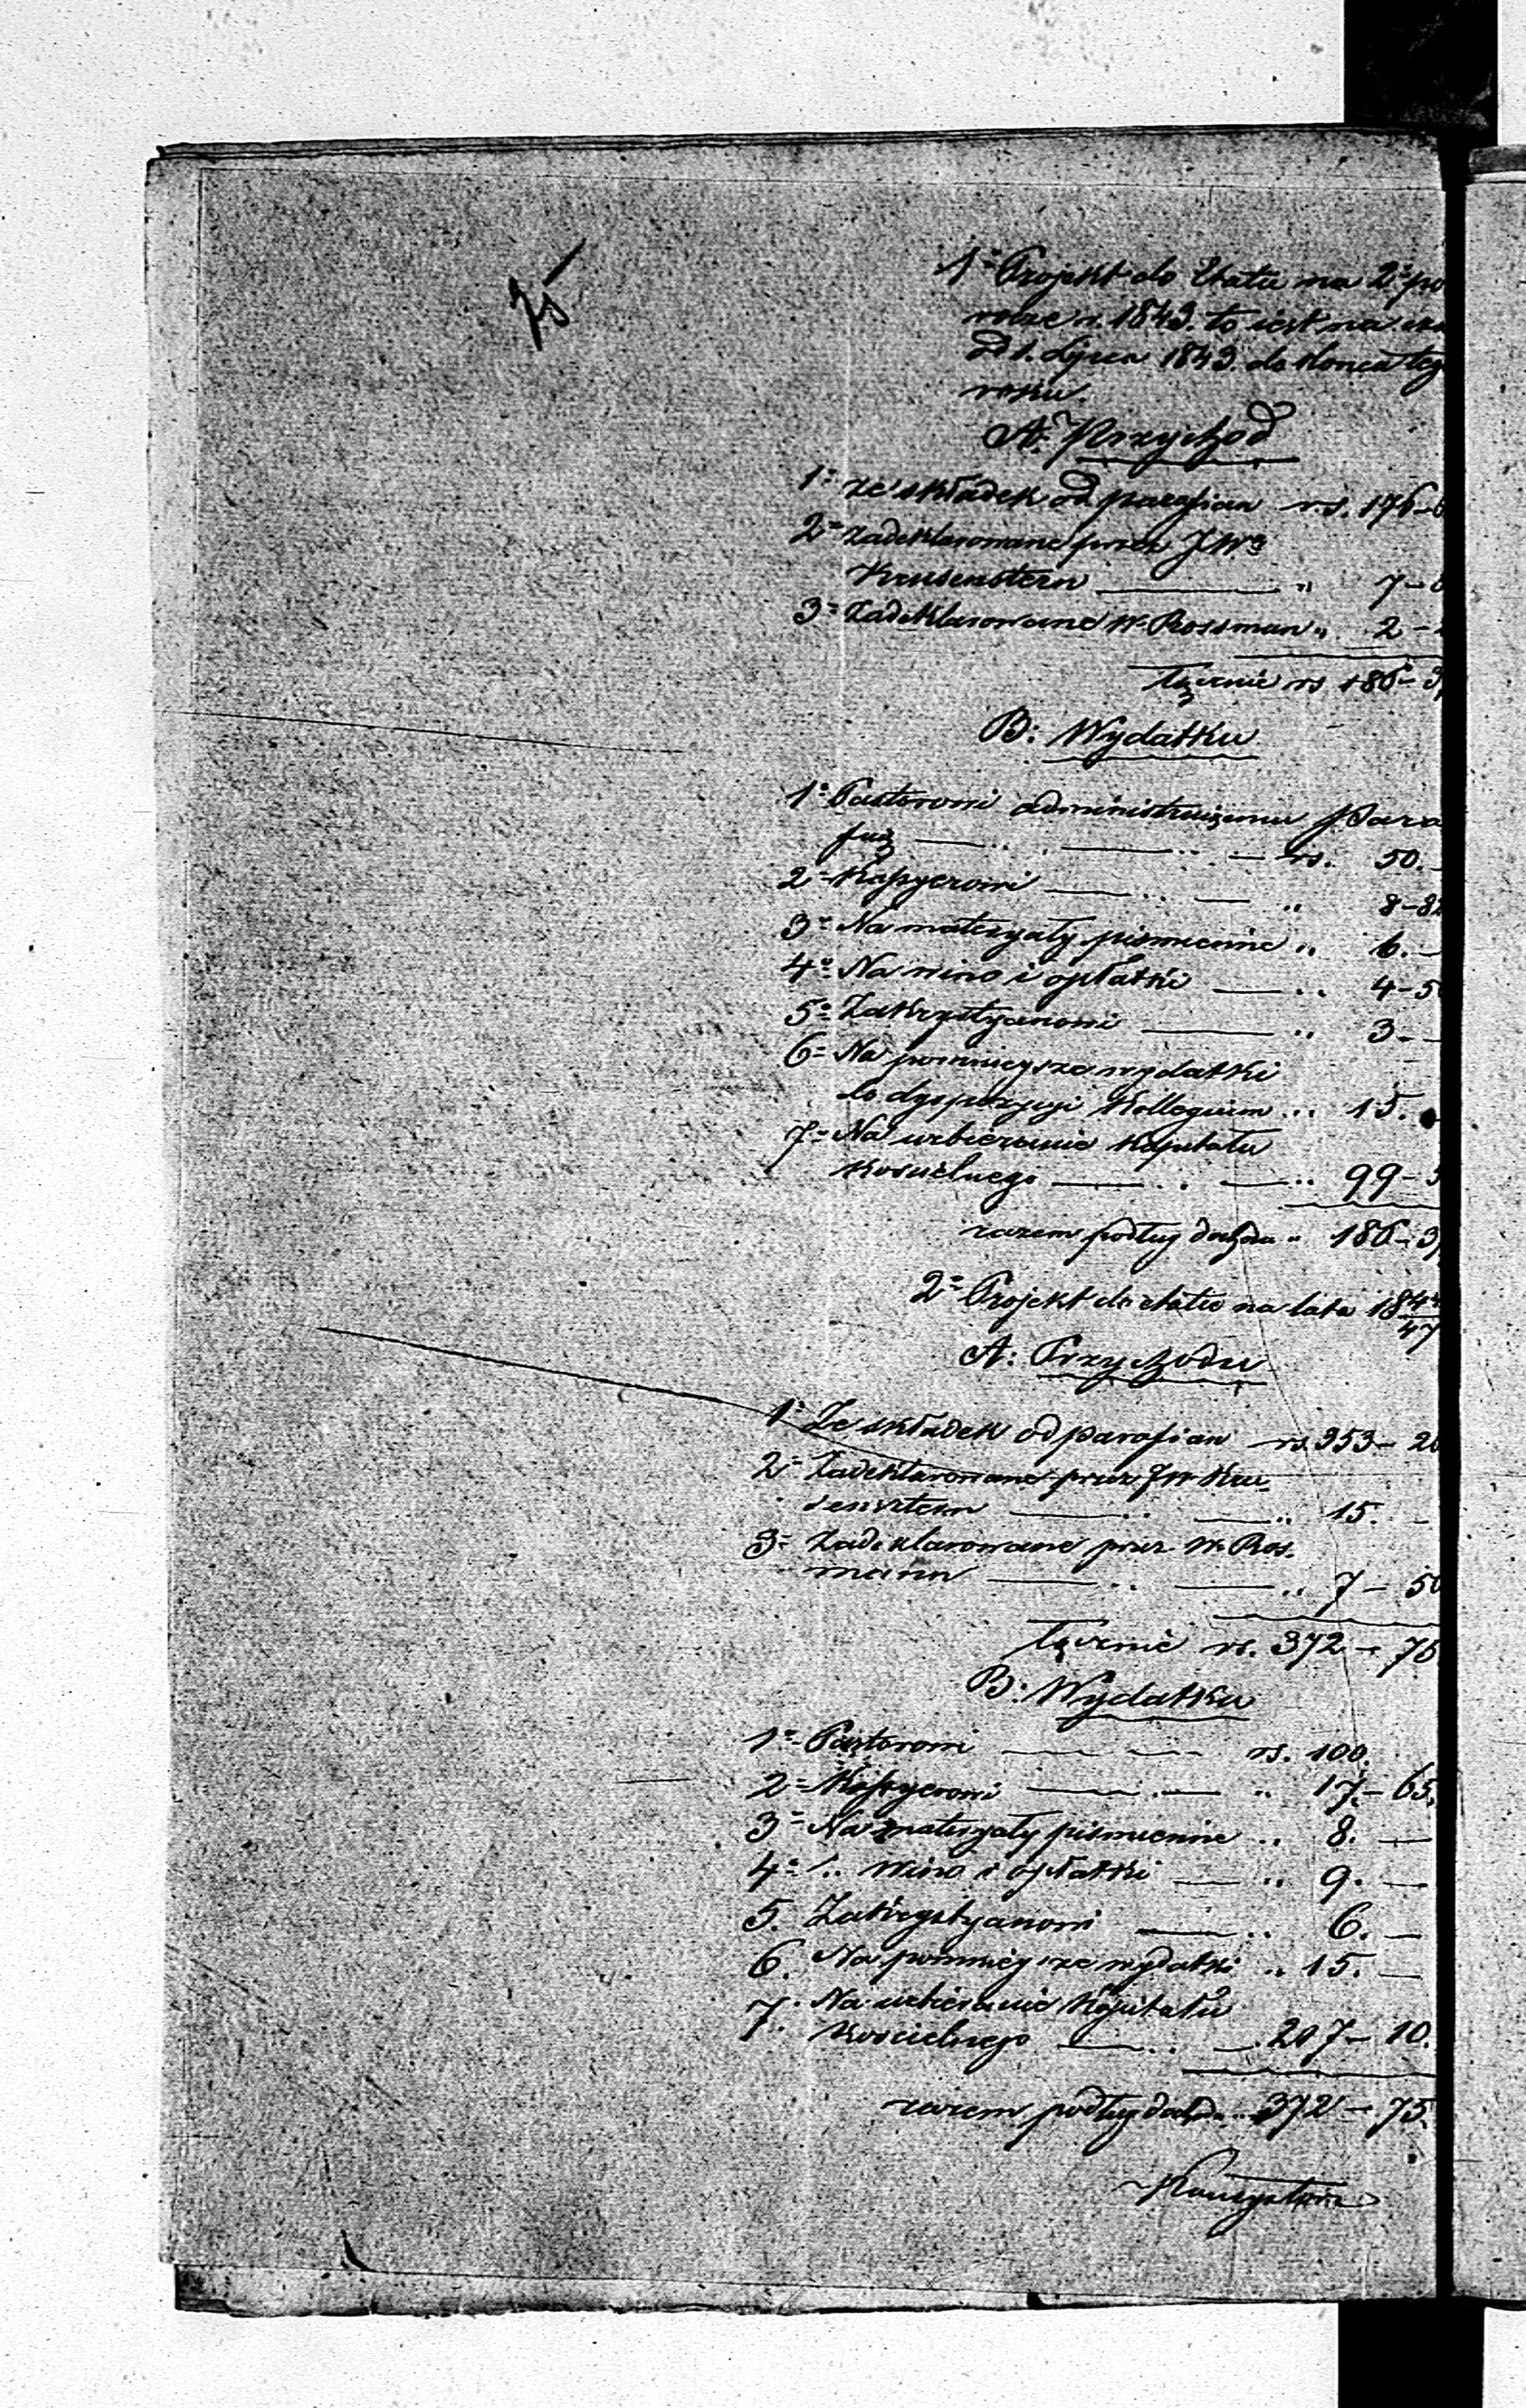 75
1º Projekt do Etatu na 2º po
rocze r. 1843. to iest na
od 1. Lipca 1843. do konca teg
roku.
A: Przychod
1º ze składek od parafian rs. 176-
2º zadeklarowane przez JWº
Krusenstern " 7-
3º Zadeklarowane W. Rossman " 2-
łącznie rs 186-3
B: Wydatku
1º Pastorowi administruiącemu para
fią rs. 50.-
2º Kassyerowi " 8-82
3º Na materyały pismienne " 6.-
4º Na wino i opłatki " 4-5
5º Zakrystyanowi " 3-
6º Na pomnieysze wydatki
do dyspozycyi Kollegium " 15.
7º Na uzbieranie kapitału
Koscielnego " 99-3
razem podług dochodu " 186-3
2º Projekt do etatu na lata 1844/47
A: Przychodu
1º Ze składek od parafian rs. 353-2
2º Zadeklarowane przez JW Kru
senstern " 15.-
3º Zadeklarowane przez W. Ros-
mann " 7-50
łącznie rs. 372-75
B: Wydatku
1º Pastorowi rs. 100.
2º Kassyerowi " 17.-65.
3º Na materyały pismienne " 8.-
4º " wino i opłatki " 9.-
5. Zakrystyanowi " 6.-
6. Na pomnieysze wydatki " 15.-
7. Na uzbieranie kapitału
Koscielnego 207-10.
razem podług dochodu " 372-75.